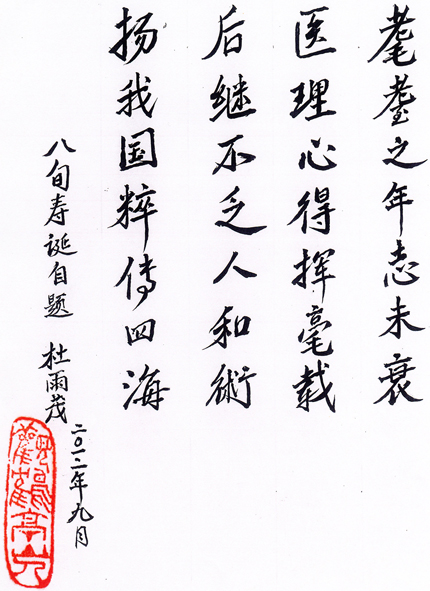 耄耋之年志未衰
医理心得挥毫载
后继不乏人和術
扬我国粹传四海
八旬寿诞自题 杜雨茂
二〇一二年九月